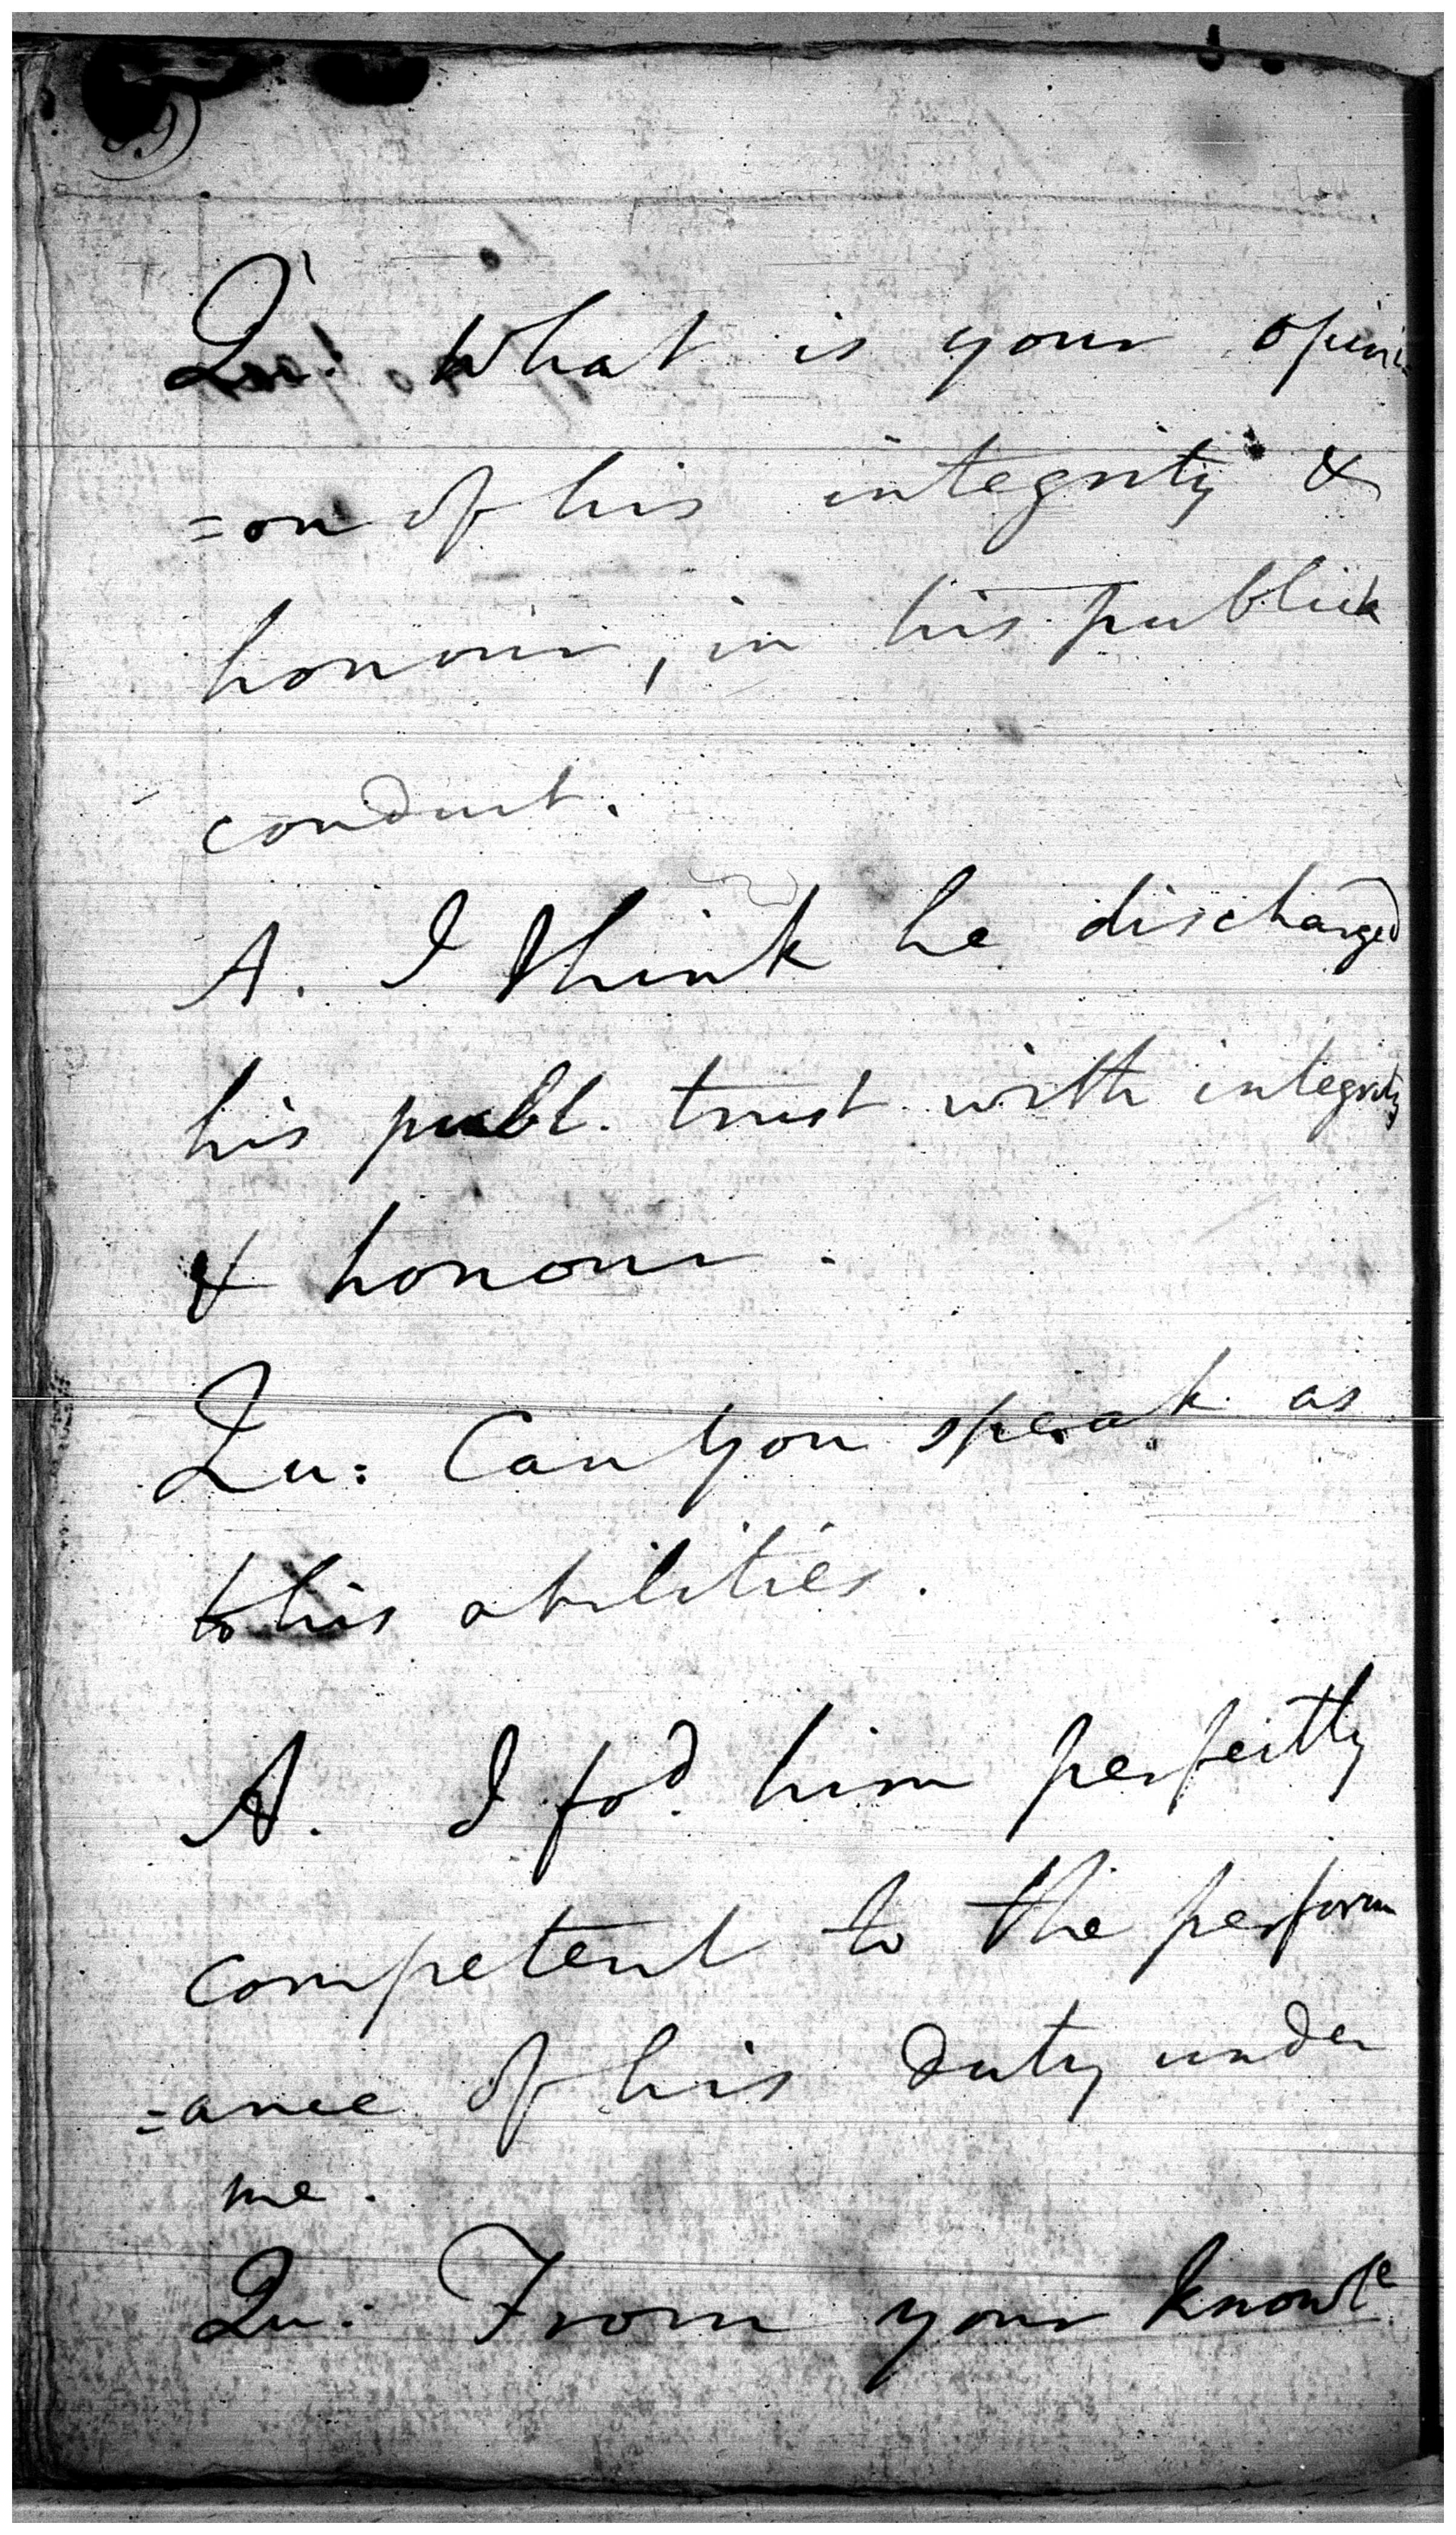 Qu: What is your opini
=on of his integrity &
honour, in his publick
conduct.
A. I think he discharged
his publ. trust with integrity
& honour.
Qu: Can you speak as
to his abilities.
A. I fod. him perfectly
competent to the perform
=ance of his duty under
me.
Qu: From your knowle